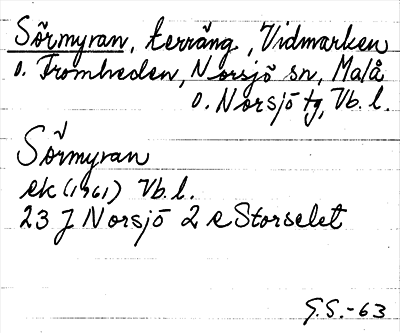 Sörmyran, terräng, Vidmarken
o. Tromheden, Norsjö sn, Malå
o. Norsjö tg, Vb. l.
Sörmyran
ek (1961) Vb. l.
23 J Norsjö 2 e Storselet
G.S.-63